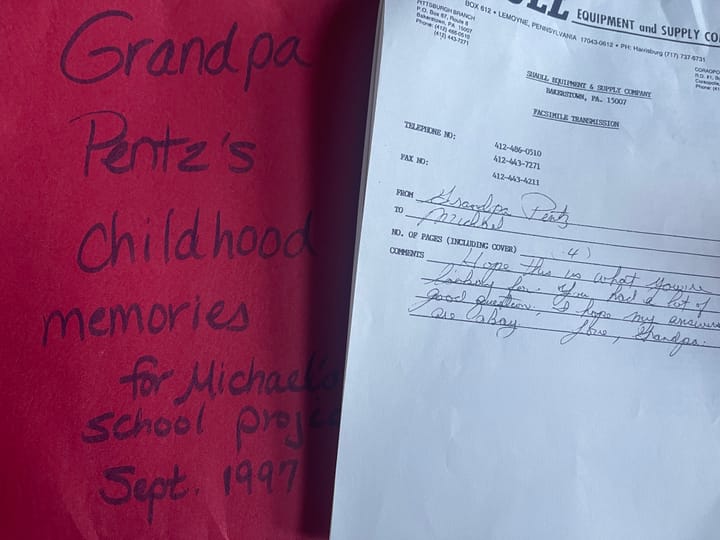 Grandpa
Pentz's
childhood
memories
for Michael's
school projec
Sept. 1997
EQUIPMENT and SUPPLY CO
BOX 612 • LEMOYNE, PENNSYLVANIA 17043-0612 • PH: Harrisburg (717) 737-6731
PITTSBURGH BRANCH
P.O. Box 67, Route 8
Bakerstown, PA 15007
Phone: (412) 486-0510
(412) 443-7271
CORAOPO
R.D. #1, B
Coraopolis
Phone: (41
SHAULL EQUIPMENT & SUPPLY COMPANY
BAKERSTOWN, PA. 15007
FACSIMILE TRANSMISSION
TELEPHONE NO: 412-486-0510
412-443-7271
FAX NO: 412-443-4211
FROM Grandpa Pentz
TO Michael
NO. OF PAGES (INCLUDING COVER) (4)
COMMENTS Hope this is what you're
looking for. You had a lot of
good question, I hope my answers
are okay Love, Grandpa.